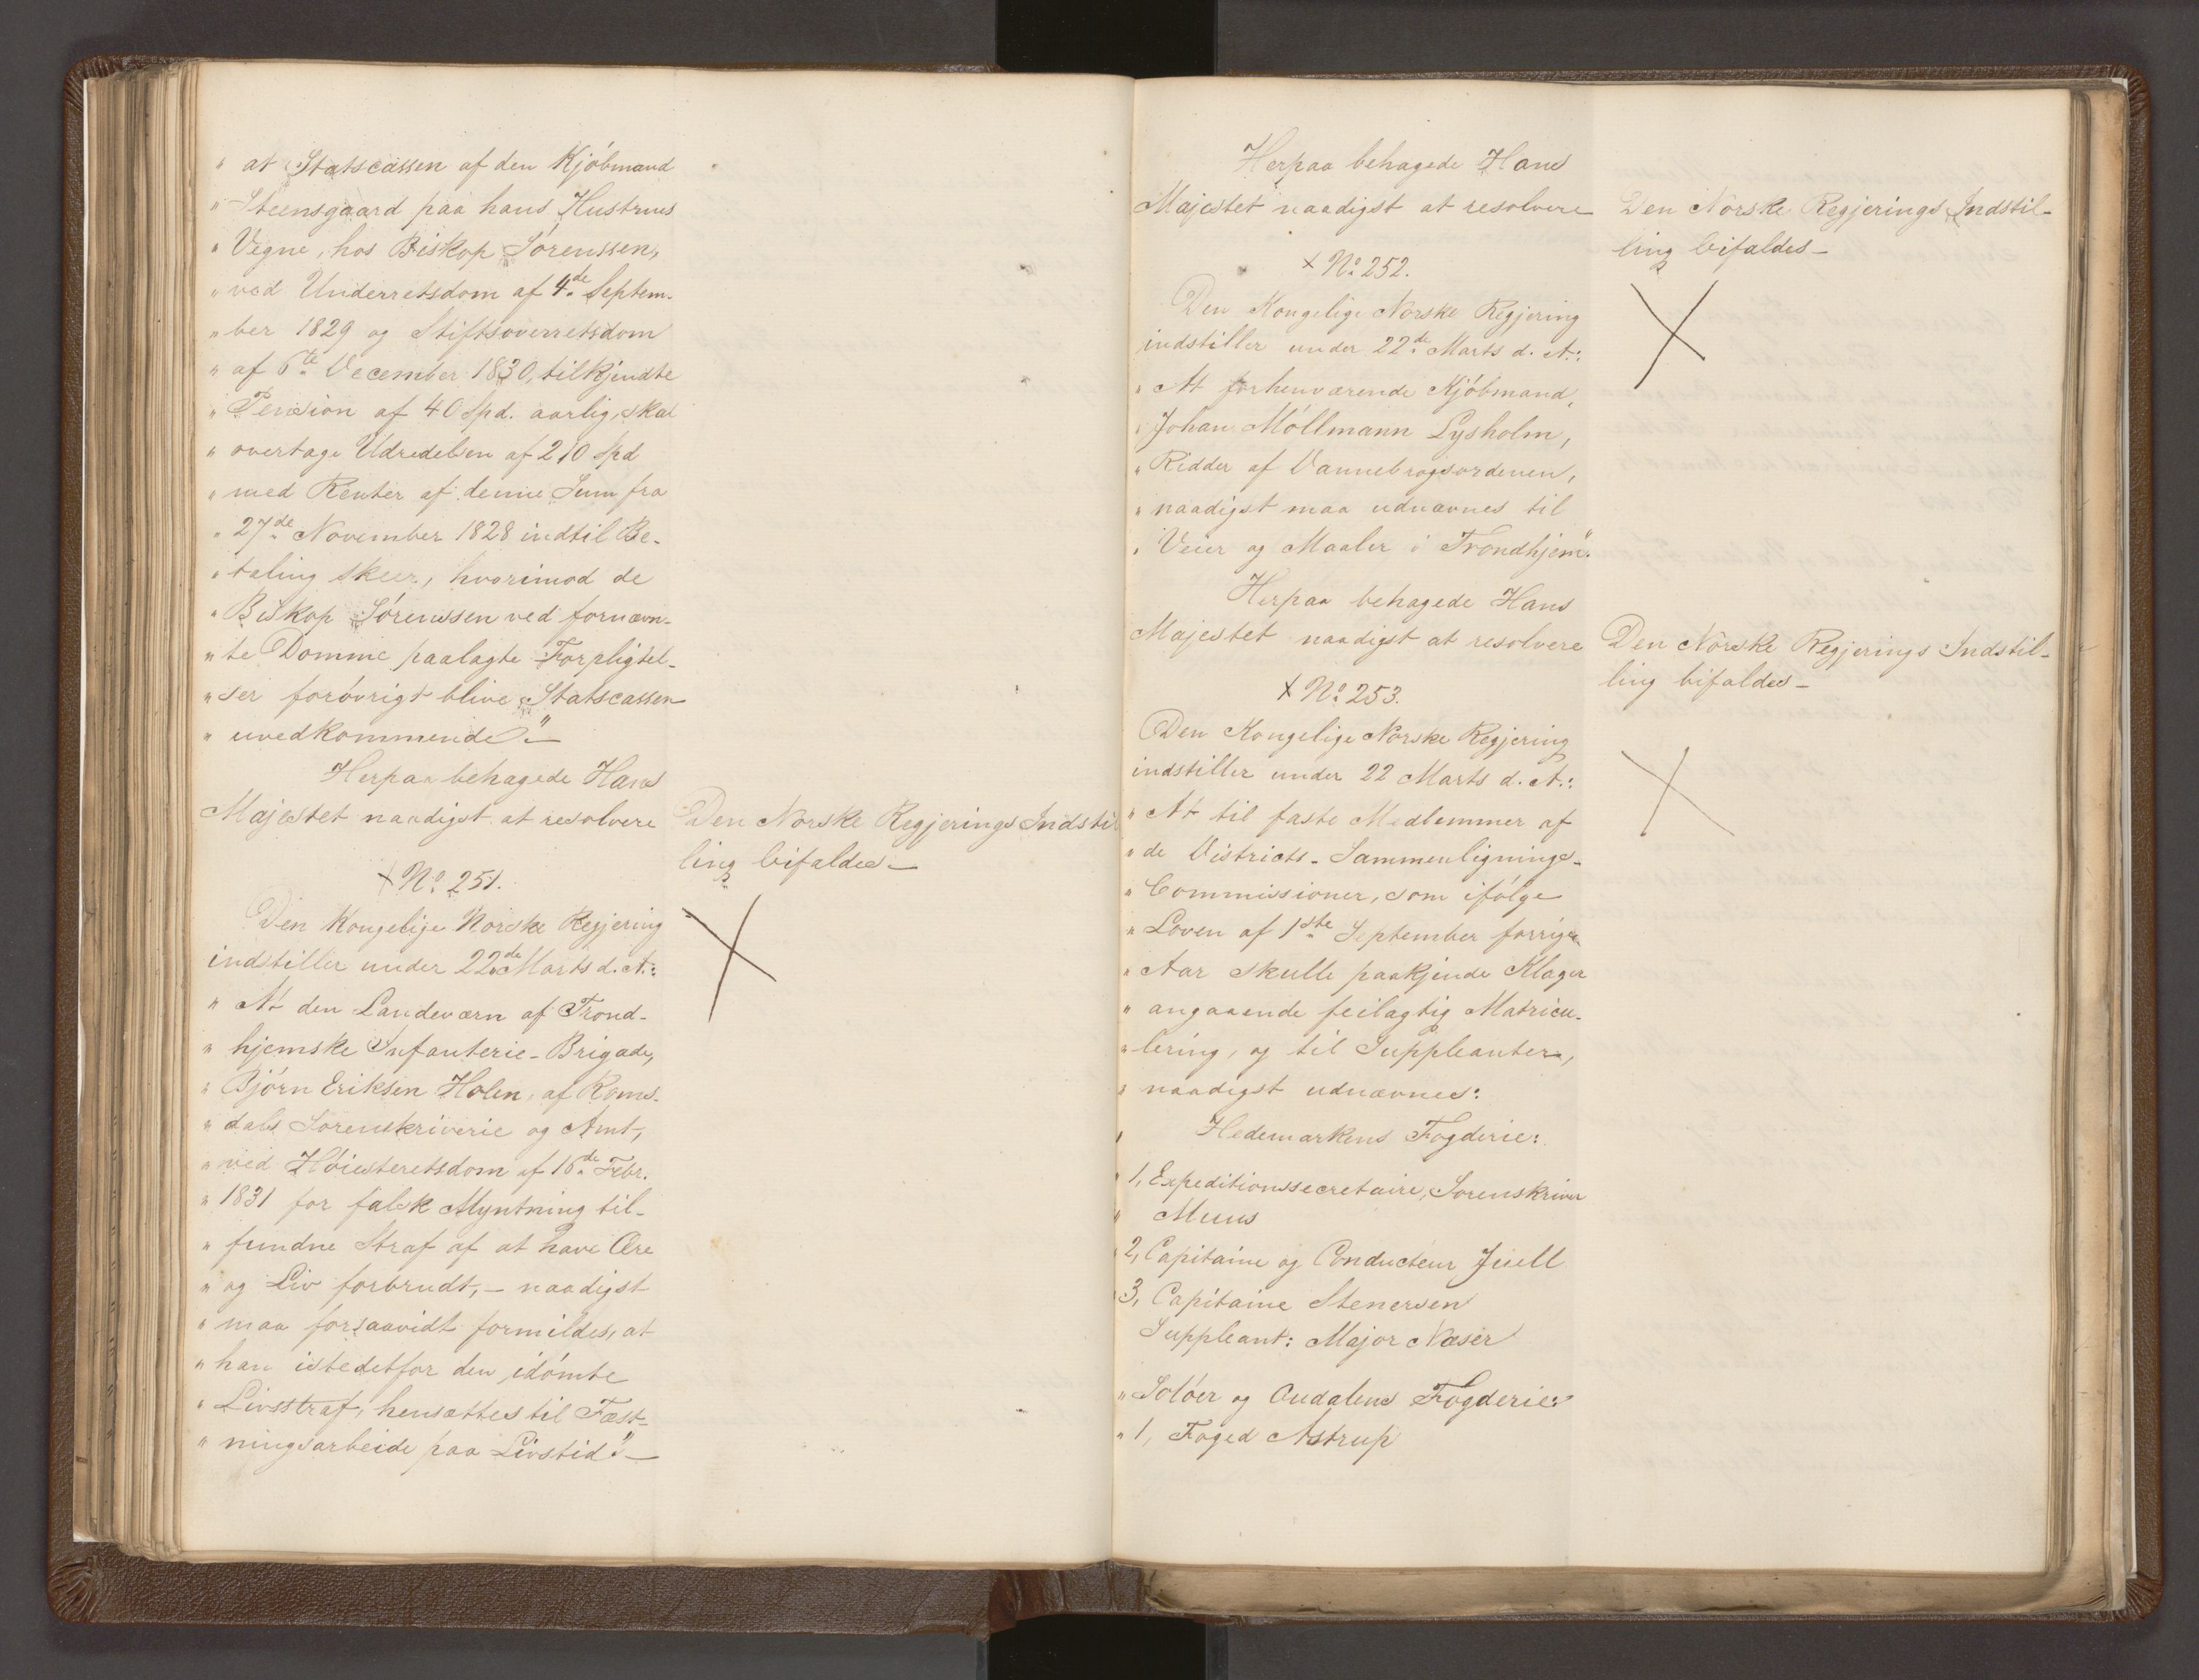 " at Statscassen af den Kjöbmand
" Steensgaard paa hans Hustrues
" Vegne, hos Biskop Sörenssen,
" ved Underretsdom af 4de Septem-
" ber 1829 og Stiftsoverretsdom
" af 6te December 1830, tilkjendte
" Pension af 40 Spd. aarlig, skal
" overtage Udredelsen af 210 Spd
" med Renter af denne Sum fra
" 27de November 1828 indtil Be-
" taling skeer, hvorimod de
" Biskop Sörenssen ved fornævn-
" te Domme paalagte Forpligtel-
" ser forövrigt blive Statscassen
" uvedkommende." —
Herpaa behagede Hans
Majestet naadigst at resolvere
Den Norske Regjerings Indstil
ling bifaldes —
+ No 251.
Den Kongelige Norske Regjering
indstiller under 22de Marts d. A.:
" At den Landeværn af Trond-
" hjemske Infanterie-Brigade,
" Björn Eriksen Holen, af Roms-
" dals Sorenskriverie og Amt,
" ved Höiesteretsdom af 16de Febr.
" 1831 for falsk Myntning til-
" fundne Straf af at have Ære
" og Liv forbrudt, — naadigst
" maa forsaavidt formildes, at
" han istedetfor den idömte
" Livsstraf, hensættes til Fæst-
" ningsarbeide paa Livstid" —
Herpaa behagede Hans
Majestet naadigst at resolvere
Den Norske Regjerings Indstil-
ling bifaldes —
+ No 252.
Den Kongelige Norske Regjering
indstiller under 22de Marts d. A.:
" At forhenværende Kjöbmand,
" Johan Möllmann Lysholm,
" Ridder af Dannebrogsordenen,
" naadigst maa udnævnes til
" Veier og Maaler i Trondhjem".
Herpaa behagede Hans
Majestet naadigst at resolvere
Den Norske Regjerings Indstil-
ling bifaldes —
+ No 253.
Den Kongelige Norske Regjering
indstiller under 22 Marts d. A.:
" At til faste Medlemmer af
" de Districts-Sammenlignings-
" Commissioner, som ifölge
" Loven af 1ste September forrige
" Aar skulle paakjende Klager
" angaaende feilagtig Matricu-
" lering, og til Suppleanter,
" naadigst udnævnes:
" Hedemarkens Fogderie:
" 1, Expeditionssecretaire, Sorenskriver
" Muus
" 2, Capitaine og Conducteur Juell
" 3, Capitaine Stenersen
Suppleant: Major Næser
" Solöer og Oudalens Fogderie:
" 1, Foged Astrup